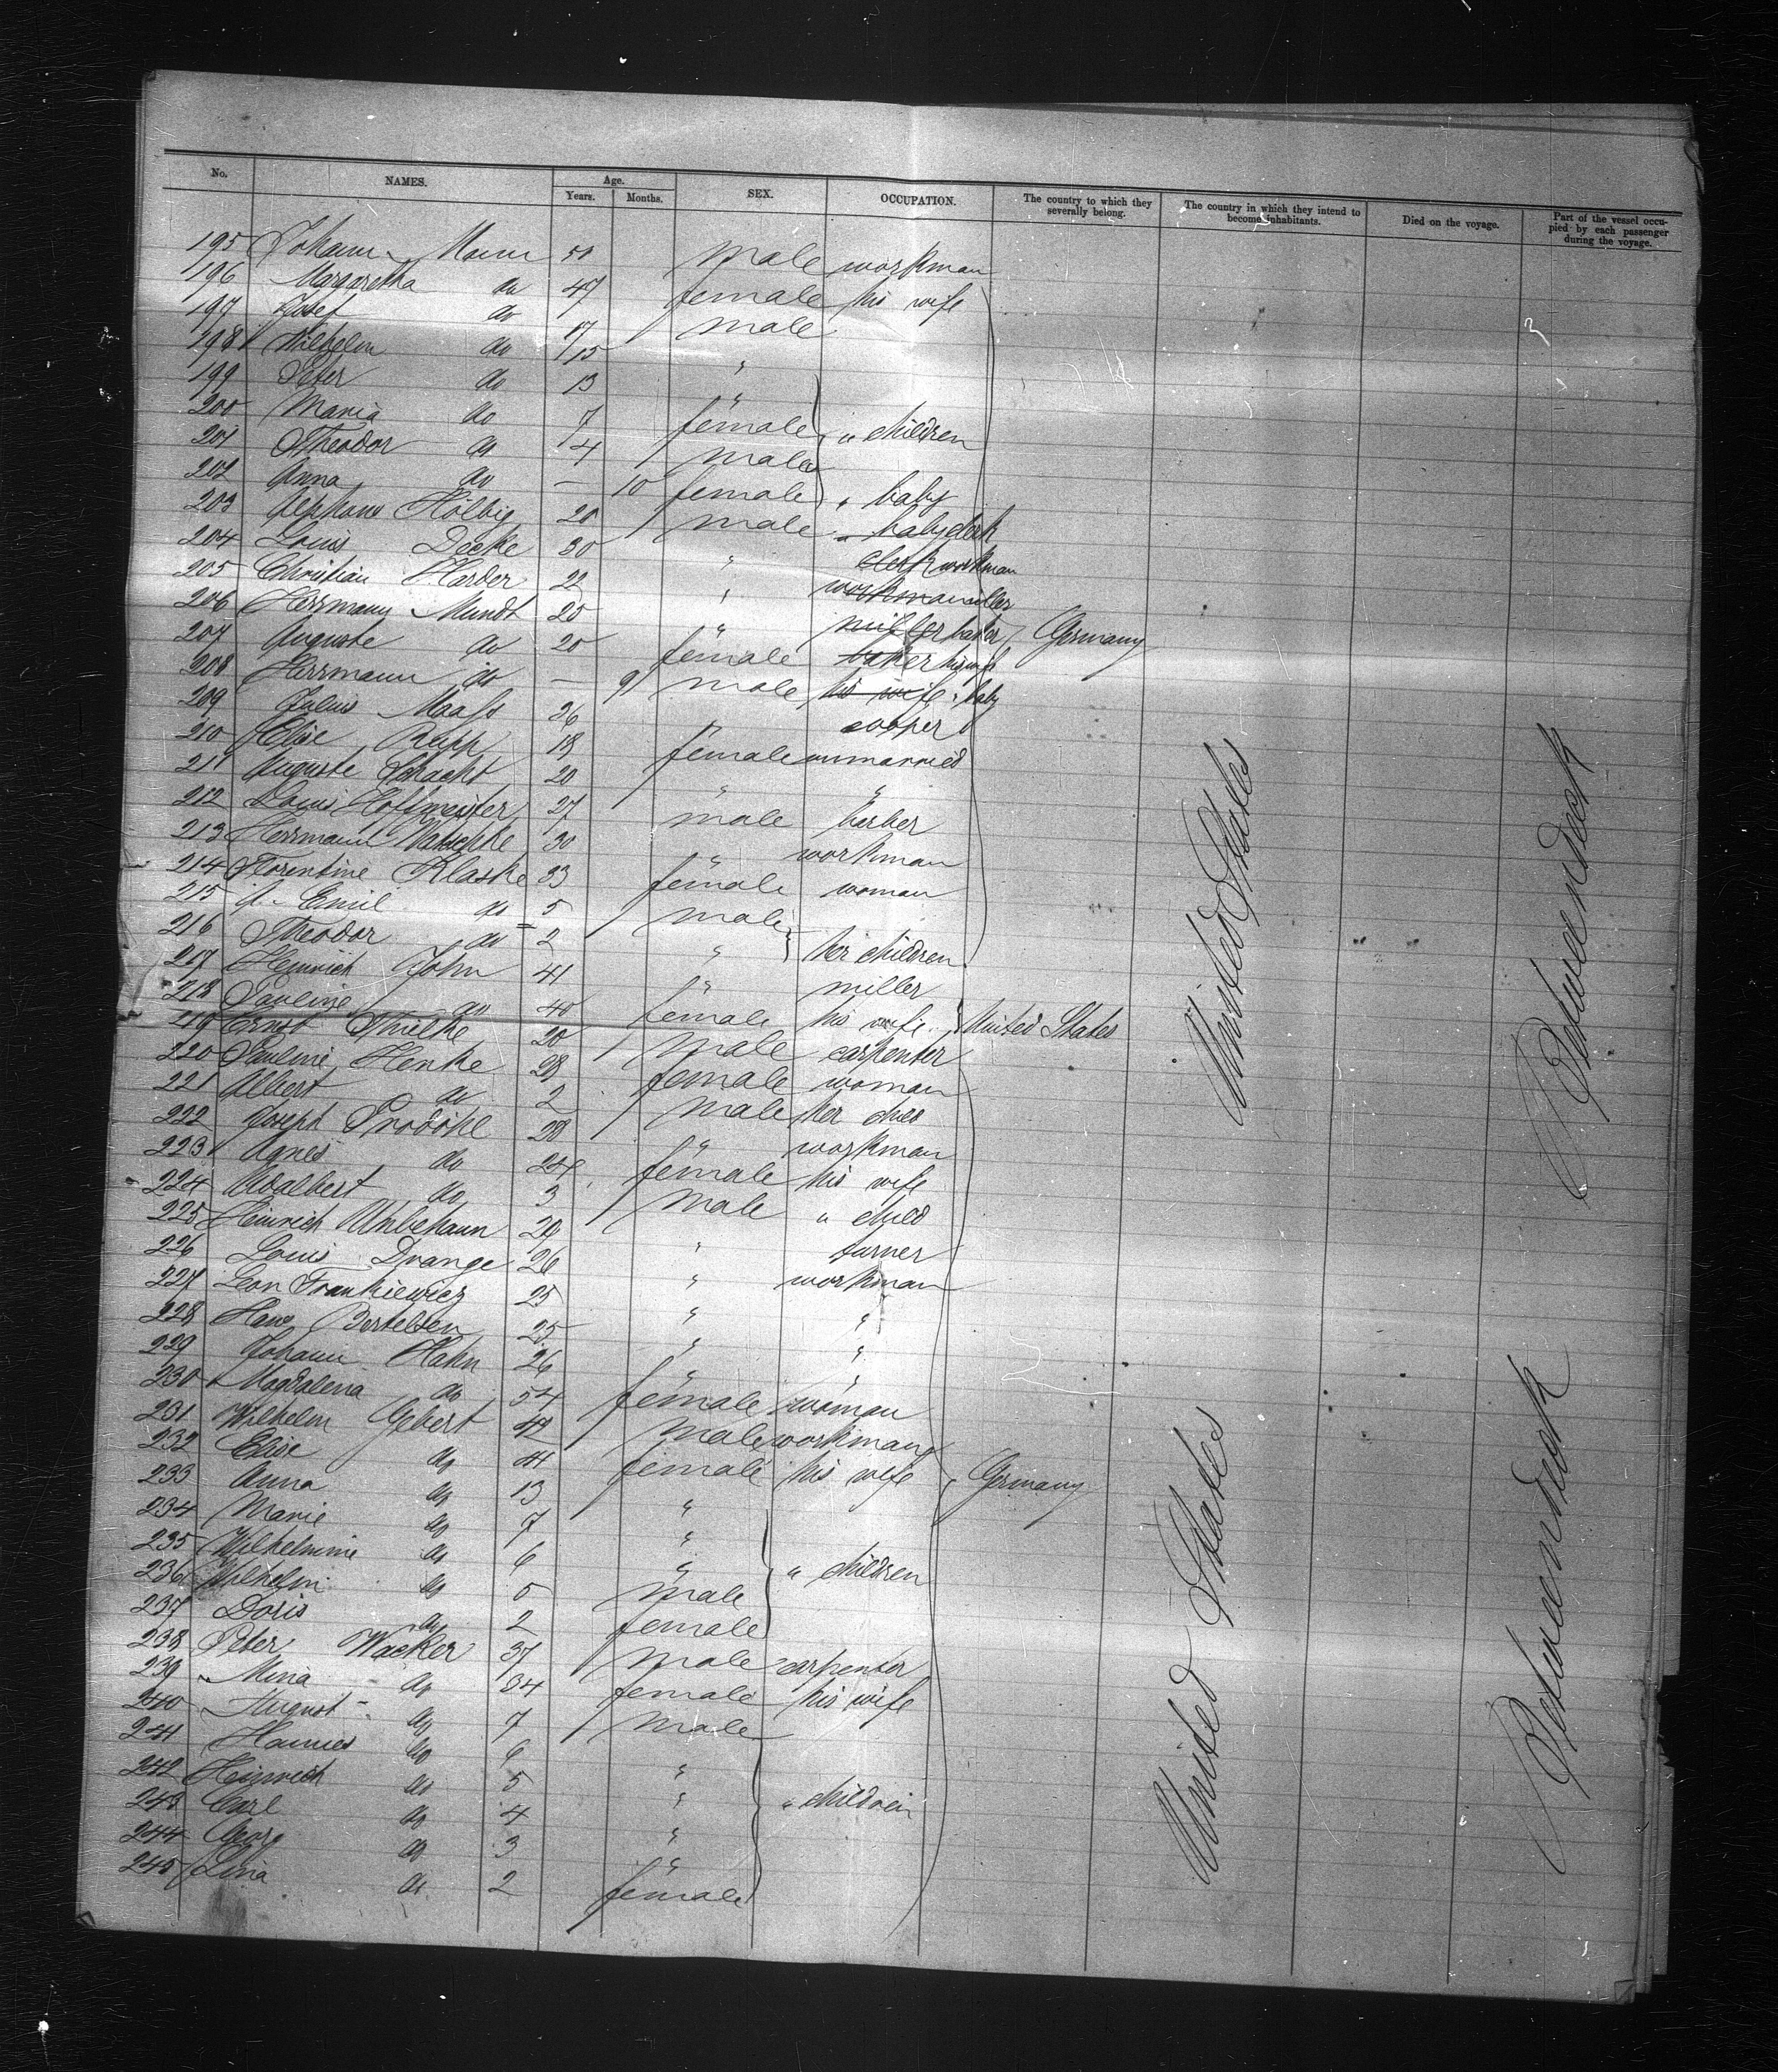 No. NAMES. Age. Years. Months. SEX. OCCUPATION. The country to which they severally belong. The country in which they intend to become inhabitants. Died on the voyage. Part of the vessel occupied by each passenger during the voyage.
195 Johann male workman
196 Margaretha do 47 female his wife
197 Josef do 17 male
198 Wilhelm do 15 "
199 Peter do 13 "
200 Maria do 7 female " children
201 Theodor do 4 male
202 Anna do — 10 female " baby
203 Alphons Hölbig 20 male " baby clerk
204 Louis Decke 30 " clerk workman
205 Christian Harder 22 " workman miller
206 Herrmann Mundt 25 " miller baker Germany
207 Auguste do 20 female baker his wife
208 Herrmann do — 9 male his wife " baby
209 Julius Maass 26 " cooper
210 Elise Rapp 18 female unmarried
211 Auguste Schacht 20 " "
212 Louis Hoffmeister 27 male barber
213 Herrmann 30 " workman
214 Florentine Klaske 33 female woman
215 Emil do 5 male
216 Theodor do 2 " her children
217 Heinrich John 41 " miller
218 Pauline do 40 female his wife United States
219 Ernst Thielke 20 male carpenter
220 Pauline Henke 28 female woman
221 Albert do 2 male her child
222 Joseph Prodöhl 28 " workman
223 Agnes do 24 female his wife
224 Adalbert do 3 male " child
225 Heinrich Unbehaun 29 " turner
226 Louis Drange 26 " workman
227 Leon Frankiewicz 25 " "
228 Hans Bertelsen 25 " "
229 Johann Hahn 26 " "
230 Magdalena do 54 female woman
231 Wilhelm Gebert 42 male workman
232 Elise do 41 female his wife Germany
233 Anna do 13 "
234 Marie do 7 "
235 Wilhelmine do 6 " " children
236 Wilhelm do 5 male
237 Doris do 2 female
238 Peter Wacker 37 male carpenter
239 Mina do 34 female his wife
240 August do 7 male
241 Hannes do 6 "
242 Heinrich do 5 " " children
243 Carl do 4 "
244 Georg do 3 "
245 Lina do 2 female
United States
United States
Between deck
Between deck